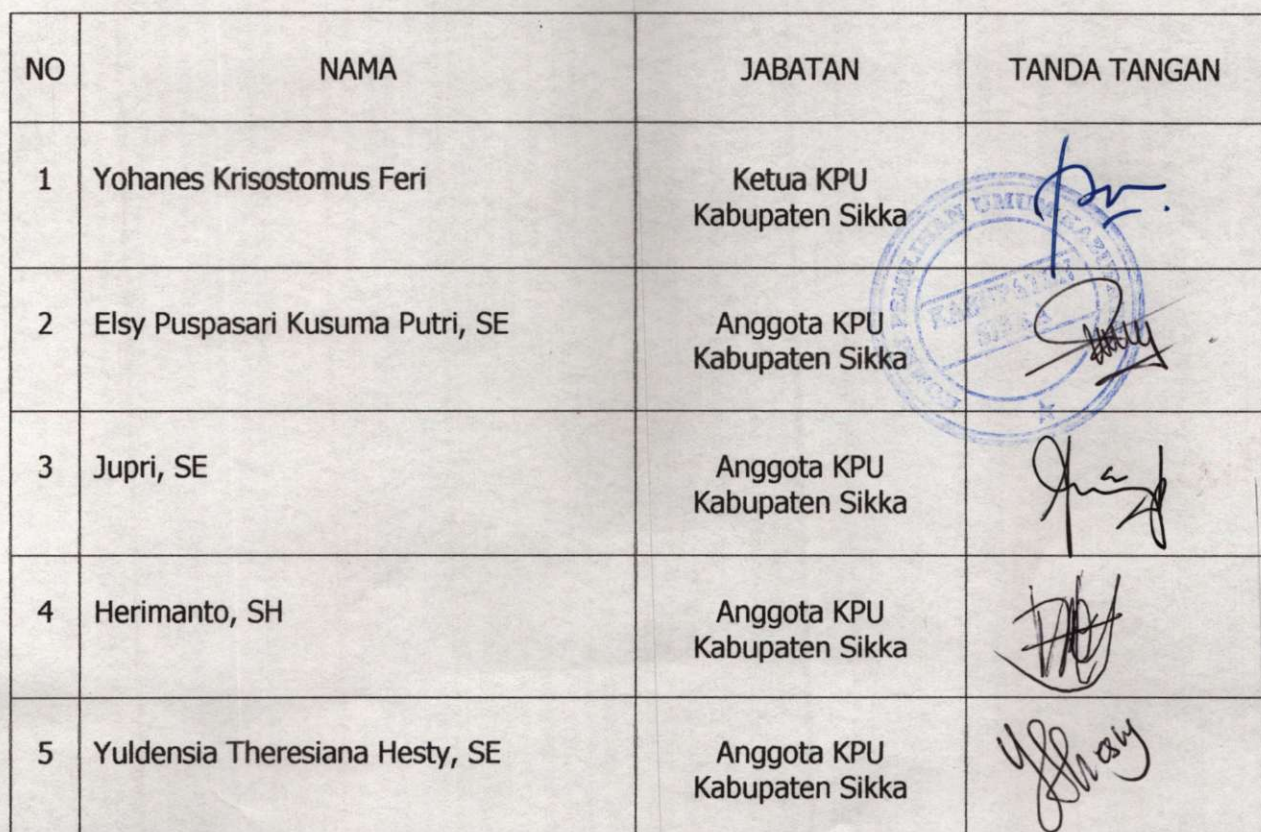 NO NAMA JABATAN TANDA TANGAN
1 Yohanes Krisostomus Feri Ketua KPU
Kabupaten Sikka
2 Elsy Puspasari Kusuma Putri, SE Anggota KPU
Kabupaten Sikka
3 Jupri, SE Anggota KPU
Kabupaten Sikka
4 Herimanto, SH Anggota KPU
Kabupaten Sikka
5 Yuldensia Theresiana Hesty, SE Anggota KPU
Kabupaten Sikka
PEMILIHAN UMUM
KABUPATEN
SIKKA